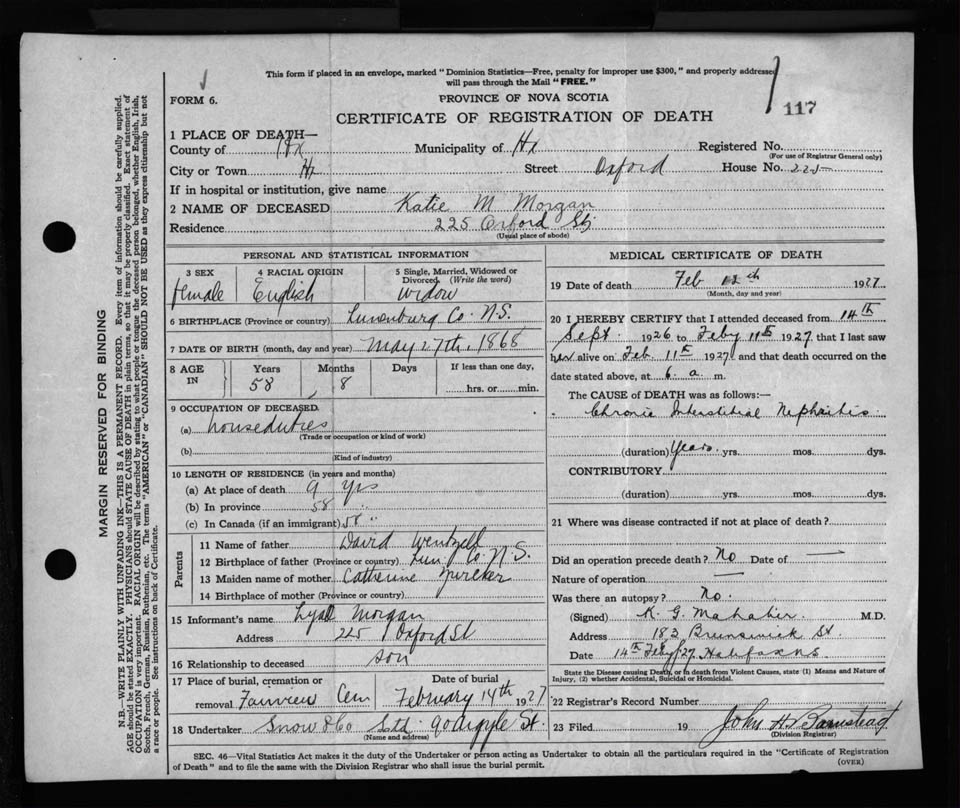 This form if placed in an envelope, marked "Dominion Statistics—Free, penalty for improper use $300," and properly addressed
will pass through the Mail "FREE."
117
FORM 6.
PROVINCE OF NOVA SCOTIA
CERTIFICATE OF REGISTRATION OF DEATH
1 PLACE OF DEATH—
County of Hx Municipality of Hx Registered No.
(For use of Registrar General only)
City or Town Hx Street Oxford House No. 225
If in hospital or institution, give name
2 NAME OF DECEASED Katie M Morgan
Residence 225 Oxford St
(Usual place of abode)
PERSONAL AND STATISTICAL INFORMATION
3 SEX 4 RACIAL ORIGIN 5 Single, Married, Widowed or
Divorced (Write the word)
female English Widow
6 BIRTHPLACE (Province or country) Lunenburg Co. N.S.
7 DATE OF BIRTH (month, day and year) May 27th, 1868
8 AGE IN Years Months Days If less than one day,
58 8 hrs. or min.
9 OCCUPATION OF DECEASED
(a) houseduties
(Trade or occupation or kind of work)
(b)
(Kind of industry)
10 LENGTH OF RESIDENCE (in years and months)
(a) At place of death 9 Yrs
(b) In province 58 "
(c) In Canada (if an immigrant) 58 "
Parents
11 Name of father David Wentzell
12 Birthplace of father (Province or country) Lun. Co. N.S.
13 Maiden name of mother Catherine
14 Birthplace of mother (Province or country)
15 Informant's name Morgan
Address 225 Oxford St
16 Relationship to deceased son
17 Place of burial, cremation or Date of burial
removal Fairview Cem February 14th 1927
18 Undertaker Snow & Co Ltd. 90 Argyle St.
(Name and address)
MEDICAL CERTIFICATE OF DEATH
19 Date of death Feb 12th 1927
(Month, day and year)
20 I HEREBY CERTIFY that I attended deceased from 14th
Sept. 1926 to Feby 11th 1927, that I last saw
her alive on Feb. 11th 1927 and that death occurred on the
date stated above, at 6 a. m.
The CAUSE of DEATH was as follows:—
Chronic Interstitial Nephritis
(duration) Years yrs. mos. dys.
CONTRIBUTORY
(duration) yrs. mos. dys.
21 Where was disease contracted if not at place of death?
Did an operation precede death? No Date of —
Nature of operation —
Was there an autopsy? No.
(Signed) K. G. Mahabir M.D.
Address 183 Brunswick St.
Date 14th Feby '27 Halifax N S
State the Disease causing Death, or in death from Violent Causes, state (1) Means and Nature of
Injury, (2) whether Accidental, Suicidal or Homicidal.
22 Registrar's Record Number
23 Filed 19 John H. Barnstead
(Division Registrar)
SEC. 46—Vital Statistics Act makes it the duty of the Undertaker or person acting as Undertaker to obtain all the particulars required in the "Certificate of Registration
of Death" and to file the same with the Division Registrar who shall issue the burial permit.
(OVER)
MARGIN RESERVED FOR BINDING
N.B.—WRITE PLAINLY WITH UNFADING INK—THIS IS A PERMANENT RECORD. Every item of information should be carefully supplied.
AGE should be stated EXACTLY. PHYSICIANS should STATE CAUSE OF DEATH in plain terms, so that it may be properly classified. Exact statement of
OCCUPATION is very important. RACIAL ORIGIN will be described by stating to what people or tongue the deceased person belonged, whether English, Irish,
Scotch, French, German, Russian, Ruthenian, etc. The terms "AMERICAN" or "CANADIAN" SHOULD NOT BE USED as they express citizenship but not
a race or people. See instructions on back of Certificate.